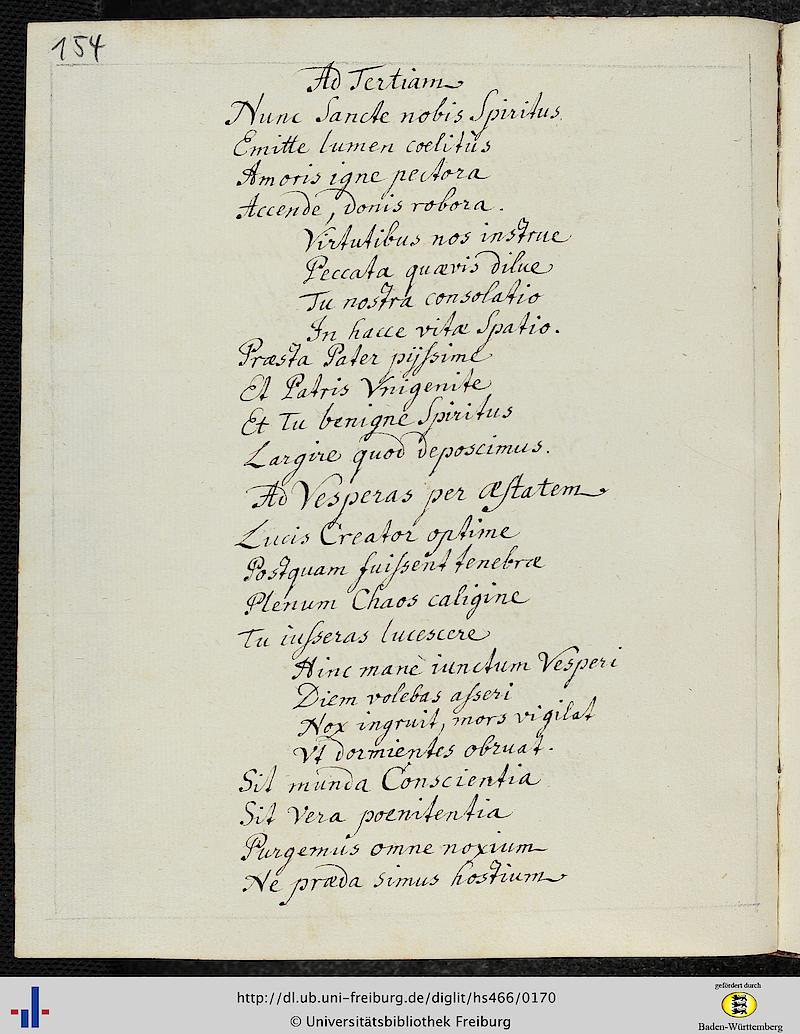 154
Ad Tertiam
Nunc Sancte nobis Spiritus
Emitte lumen coelitùs
Amoris igne pectora
Accende, donis robora.
Virtutibus nos instrue
Peccata quævis dilue
Tu nostra consolatio
In hacce vitæ Spatio.
Præsta Pater pijſsime
Et Patris Vnigenite
Et Tu benigne Spiritus
Largire quod deposcimus.
Ad Vesperas per æſtatem
Lucis Creator optime
Postquam fuiſsent tenebræ
Plenum Chaos caligine
Tu iuſseras lucescere
Hinc manè iunctum Vesperi
Diem volebas aſseri
Nox ingruit, mors vigilat
Vt dormientes obruat.
Sit munda Conscientia
Sit Vera poenitentia
Purgemus omne noxium
Ne præda simus hostium
http://dl.ub.uni-freiburg.de/diglit/hs466/0170
© Universitätsbibliothek Freiburg
gefördert durch
Baden-Württemberg